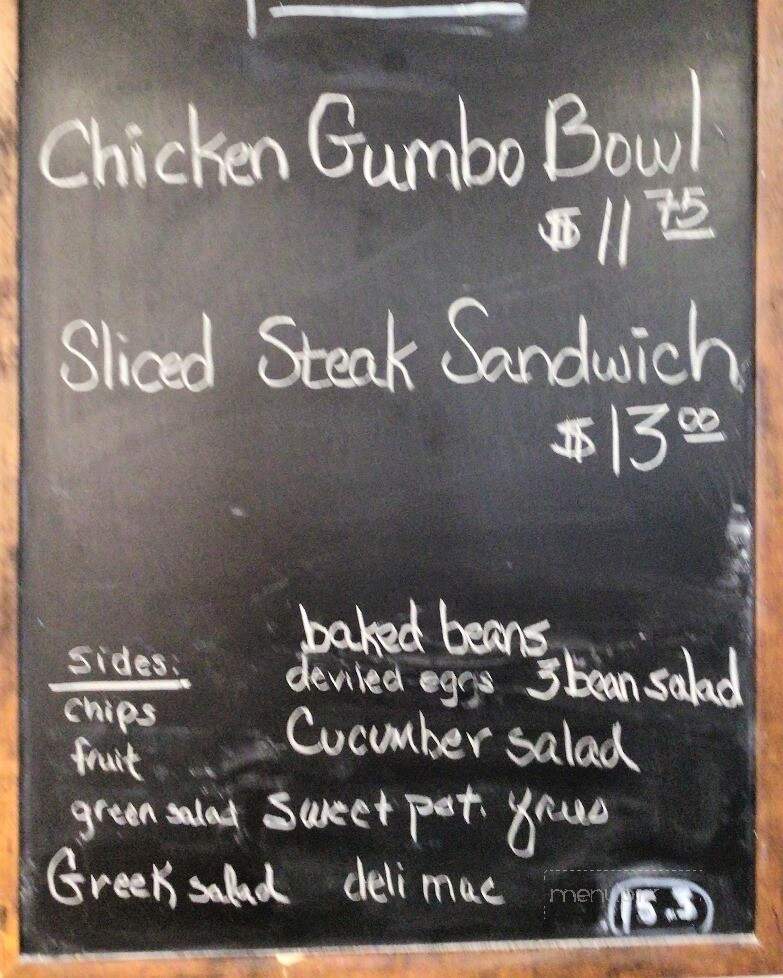 Chicken Gumbo Bowl
$11 75
Sliced Steak Sandwich
$13 00
baked beans
Sides:
deviled eggs 3 bean salad
chips
Cucumber salad
fruit
green salad sweet pot. fries
Greek salad deli mac
15.5